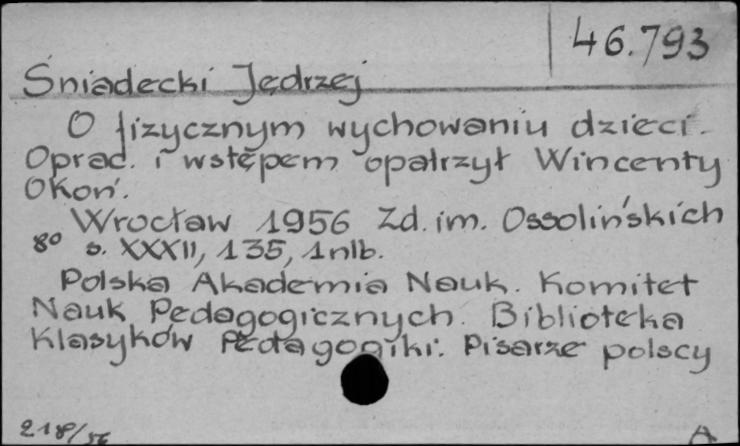 46.793
Śniadecki Jędrzej
O fizycznym wychowaniu dzieci.
Oprac. i wstępem opatrzył Wincenty
Okoń.
Wrocław 1956 Zd. im. Ossolińskich
8° s. XXXII, 135, 1 nlb.
Polska Akademia Nauk. Komitet
Nauk Pedagogicznych. Biblioteka
Klasyków Pedagogiki. Pisarze polscy
218/56 A